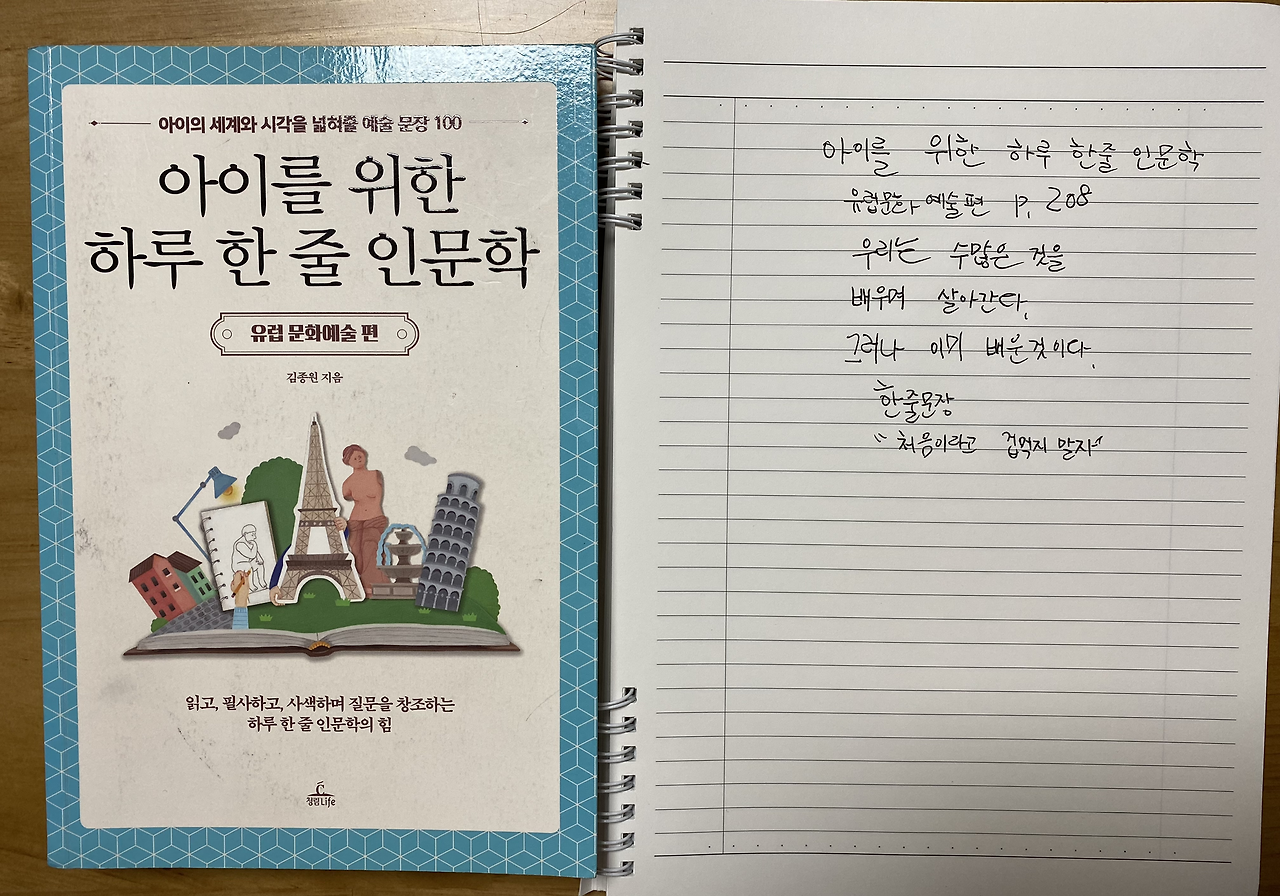 아이의 세계와 시각을 넓혀줄 예술 문장 100
아이를 위한
하루 한 줄 인문학
유럽 문화예술 편
김종원 지음
읽고, 필사하고, 사색하며 질문을 창조하는
하루 한 줄 인문학의 힘
청림Life
아이를 위한 하루 한줄 인문학
유럽문화 예술편 P. 208
우리는 수많은 것을
배우며 살아간다.
그러나 이미 배운것이다.
한줄문장
"처음이라고 겁먹지 말자"